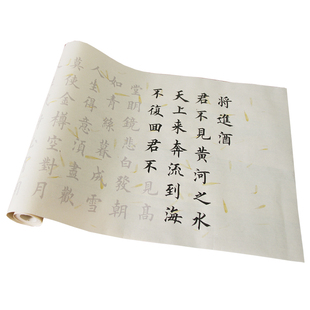 將進酒
君不見黃河之水
天上来奔流到海
不復回君不見高
堂明鏡悲白發朝
如青絲暮成雪
人生得意須盡歡
使金樽空對月